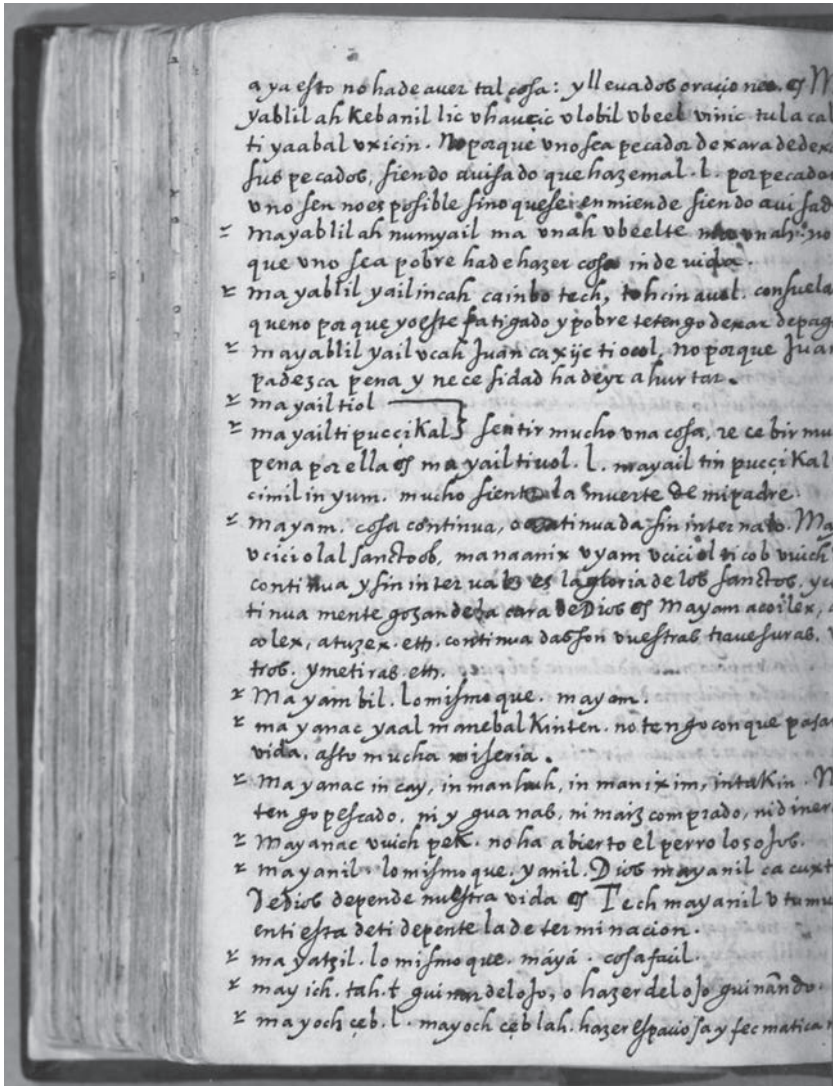 a ya esto no ha de aver tal cosa: y llevados oraçiones. ɞ M
yablil ah Kebanil lic vhauçic vlobil vbeel vinic tu la cal
ti yaabal vxicin. No porque uno sea pecador dexara dedexa
sus pecados, siendo avisado que haze mal. l. por pecador
vno sea no es posible sino que se enmiende siendo avisad
mayablil ah numyail ma vnah vbeelte vnah: no
que uno sea pobre ha de hazer cosa indevida.
ma yablil yail in cah cainbo tech, tohcin auol. consuela
que no por que yo este fatigado y pobre te tengo dexar de pag
mayablil yail ucah Juan ca xijc ti ocol, No porque Juan
padezca pena y necesidad ha de yr a hurtar.
ma yail ti ol
ma yail ti pucçiKal } sentir mucho una cosa, recebir mu
pena por ella ɞ ma yail ti uol. l. mayail tin pucçiKal
cimil in yum. mucho siento la muerte de mi padre.
mayam. cosa continua, o continuada sin internalo. Ma
vcici olal sanctoob, manaanix vyam vciciol ticob vuich
continua y sin intervalo es la gloria de los sanctos, y co
tinua mente gozan de la cara de Dios ɞ Mayam acoilex, a
colex, atuzex. etħ. continuadas son vuestras travesuras, v
tros. ymetiras. etħ.
Mayambil. lo mismo que. mayam.
ma yanac yaal manebal Kinten. no tengo con que pasar
vida. asto mucha miseria.
ma yanac in cay, in manhuh, in man ixim, in takin. N
tengo pescado, ni yguanas, ni maiz comprado, ni diner
Mayanac vuich pek. no ha abierto el perro los ojos.
mayanil. lo mismo que. yanil. Dios mayanil ca cuxt
De Dios depende nuestra vida ɞ Tech mayanil v tumu
enti esta de ti depente la determinacion.
ma yatzil. lo mismo que. máyá. cosa facil.
may ich. tah. t guinar del ojo, o hazer del ojo guinãndo.
mayoch çeb. l. mayoch çeblah. hazer espaciosa y fecmatica